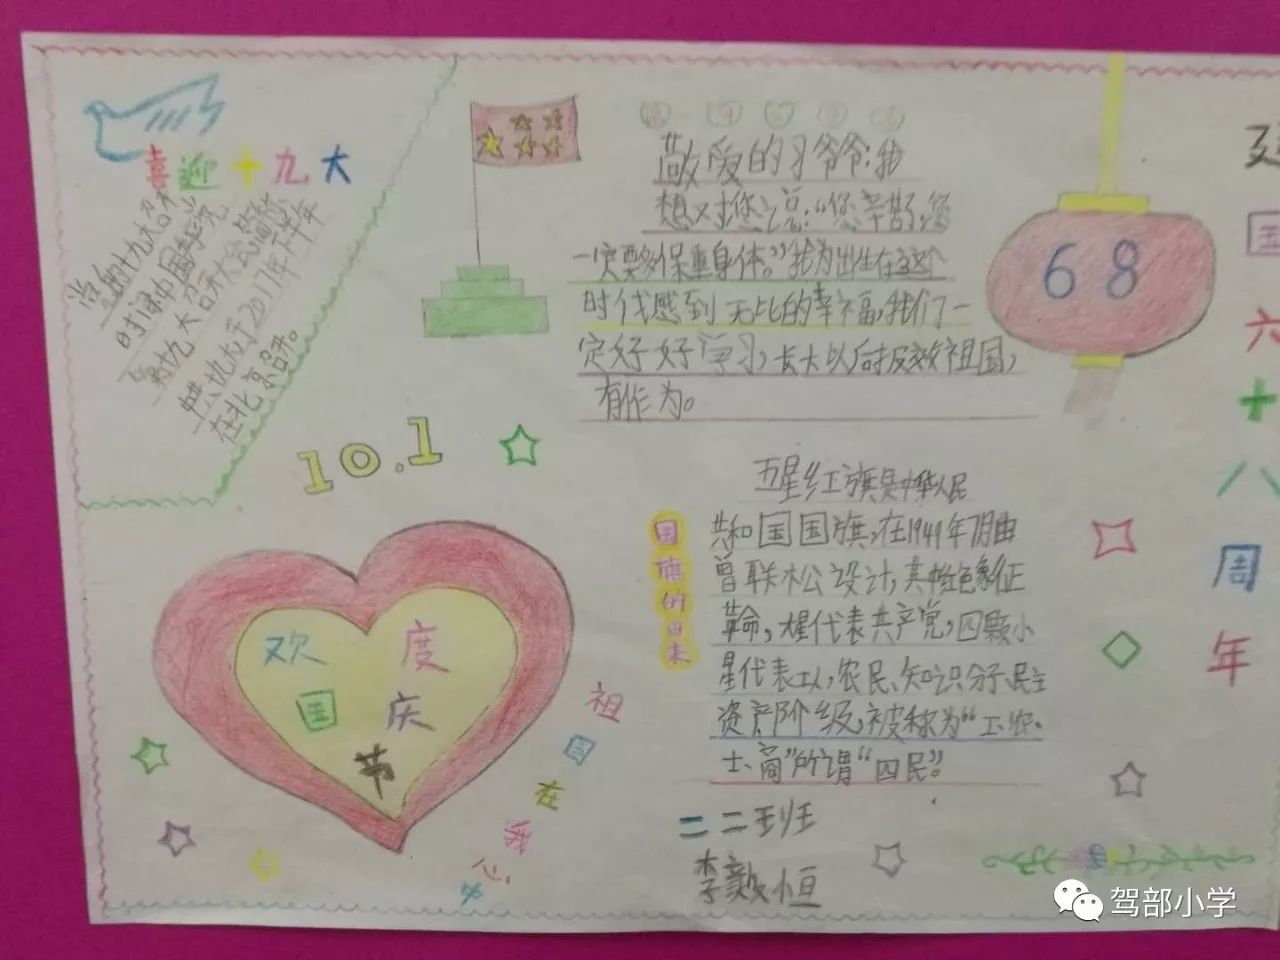 喜迎十九大
党的十九大召开
时间中国
十九大召开大会简称
中共十九大于2017年下半年
在北京召开。
10.1
敬爱的习爷爷:我
想对您说:“您辛苦了,您
一定要多保重身体。”我为出生在这个
时代感到无比的幸福,我们一
定好好学习,长大以后报效祖国,
有作为。
68
国
六
十
八
周
年
国旗的由来
五星红旗是中华人民
共和国国旗,在1949年7月由
曾联松设计,其红色象征
革命,大星代表共产党,四颗小
星代表工人,农民、知识分子、民主
资产阶级,被称为“工、农、
士、商”所谓“四民”。
欢度
国庆
节
祖国在我心
二二班
李
恒
驾部小学